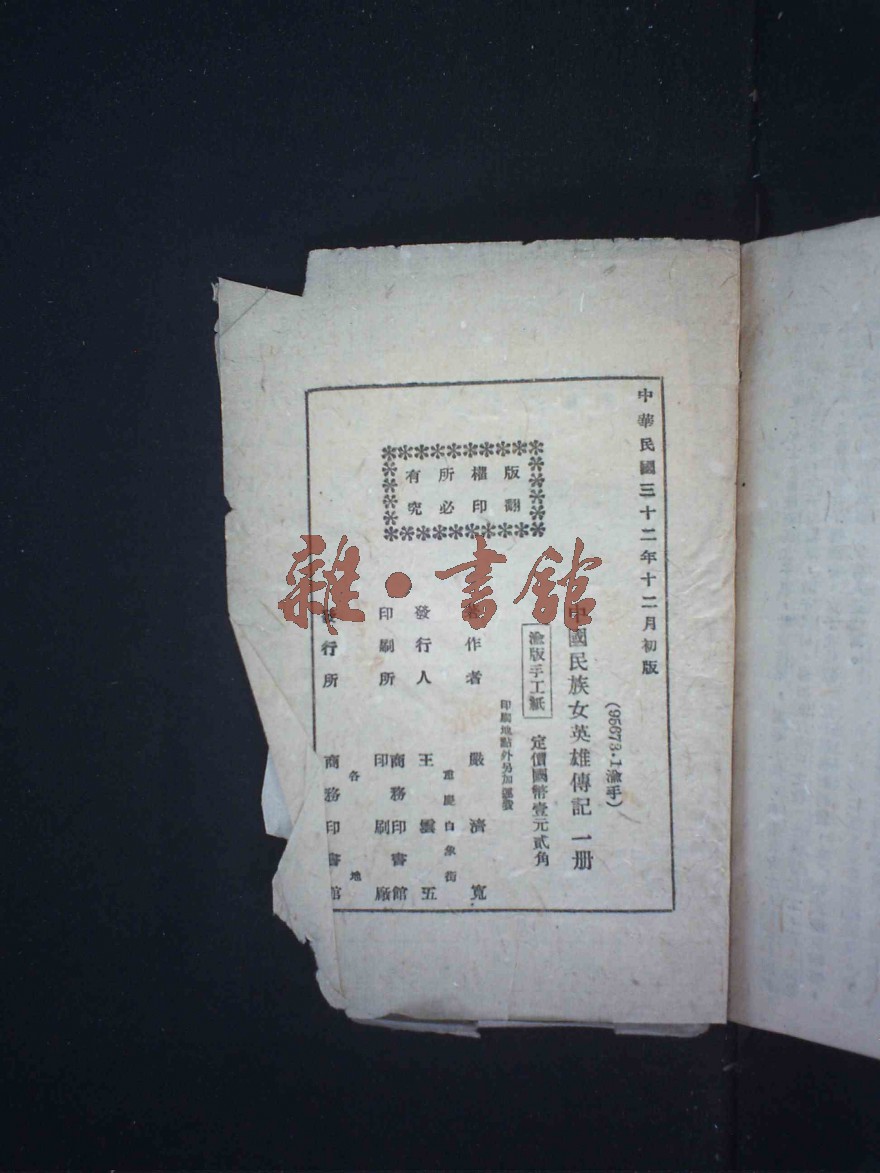 中華民國三十二年十二月初版
(95673·1渝手)
中國民族女英雄傳記 一册
渝版手工紙
定價國幣壹元貳角
印刷地點外另加運費
版權所有
翻印必究
著作者 嚴濟寬
發行人 王雲五
重慶白象街
印刷所 商務印書館
印刷廠
發行所 商務印書館
各地
雜·書館